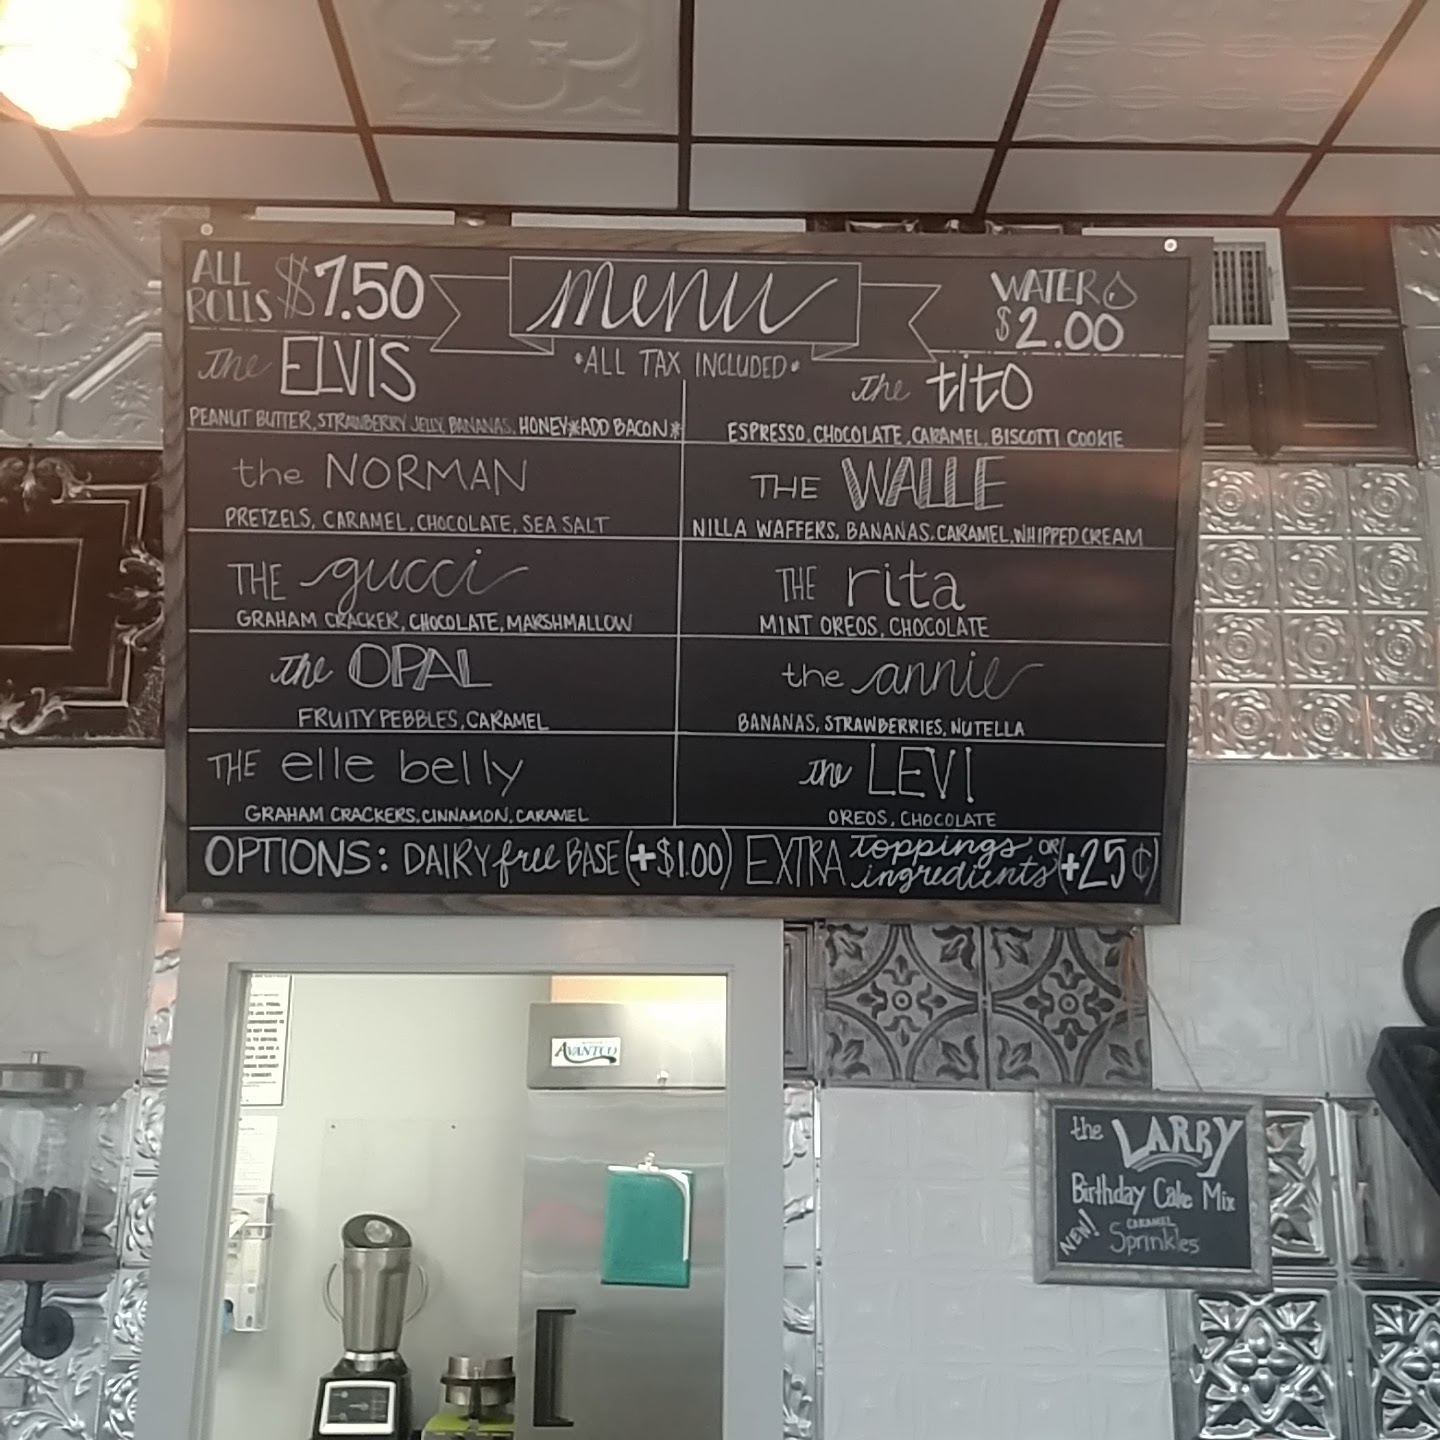 ALL ROLLS $7.50
menu
WATER
$2.00
*ALL TAX INCLUDED*
the ELVIS
PEANUT BUTTER, STRAWBERRY JELLY, BANANAS, HONEY *ADD BACON*
the NORMAN
PRETZELS, CARAMEL, CHOCOLATE, SEA SALT
THE gucci
GRAHAM CRACKER, CHOCOLATE, MARSHMALLOW
the OPAL
FRUITY PEBBLES, CARAMEL
THE elle belly
GRAHAM CRACKERS, CINNAMON, CARAMEL
the tito
ESPRESSO, CHOCOLATE, CARAMEL, BISCOTTI COOKIE
THE WALLE
NILLA WAFFERS, BANANAS, CARAMEL, WHIPPED CREAM
THE rita
MINT OREOS, CHOCOLATE
the annie
BANANAS, STRAWBERRIES, NUTELLA
the LEVI
OREOS, CHOCOLATE
OPTIONS: DAIRY free BASE (+$1.00) EXTRA toppings OR ingredients (+25¢)
AVANTCO
the LARRY
Birthday Cake Mix
NEW! CARAMEL
Sprinkles